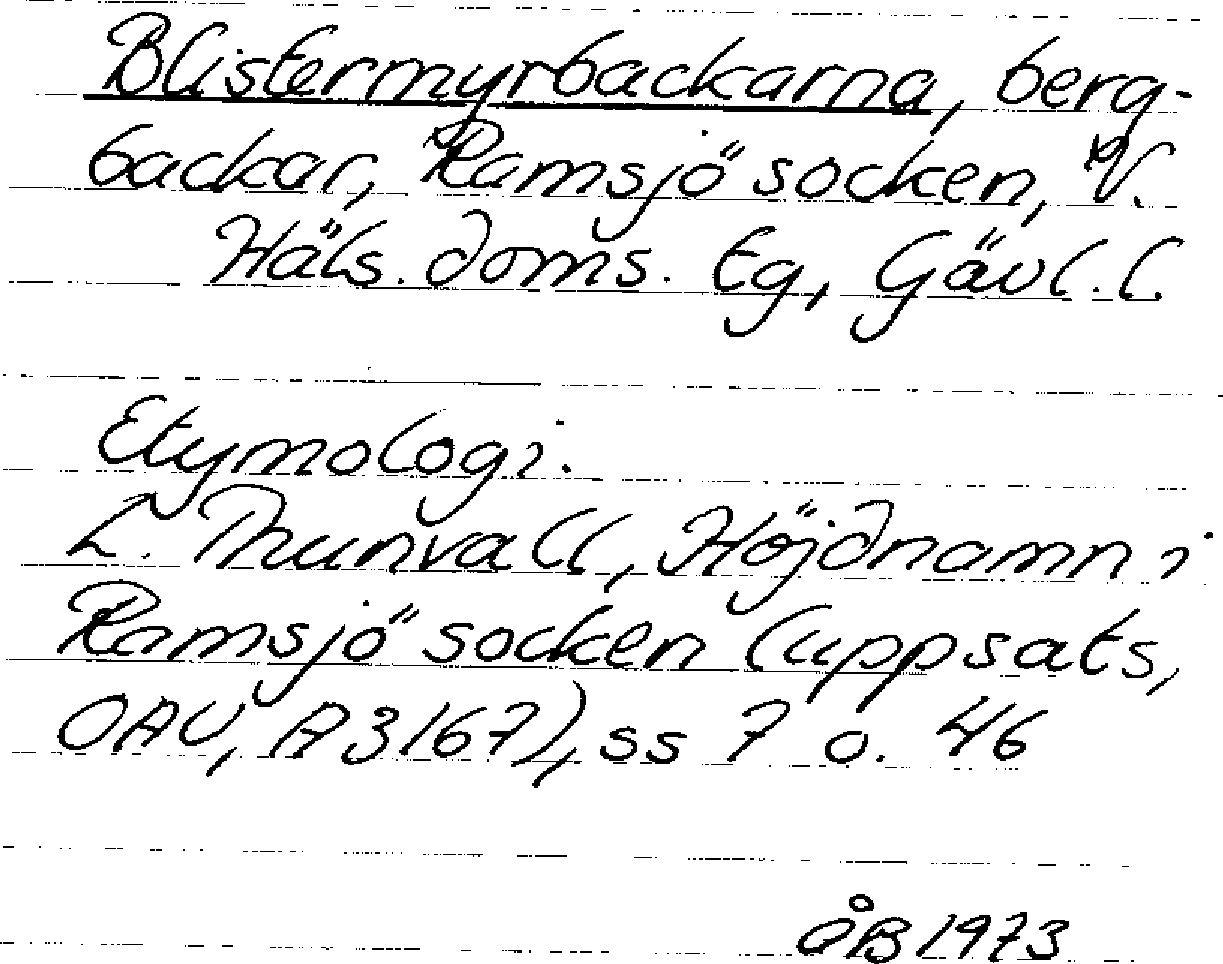 Blistermyrbackarna, berg-
backar, Ramsjö socken, V.
Häls. doms. tg, Gävl. l.
Etymologi:
L. Thunvall, Höjdnamn i
Ramsjö socken (uppsats,
OAU, A3167), ss 7 o. 46
ÅB 1973